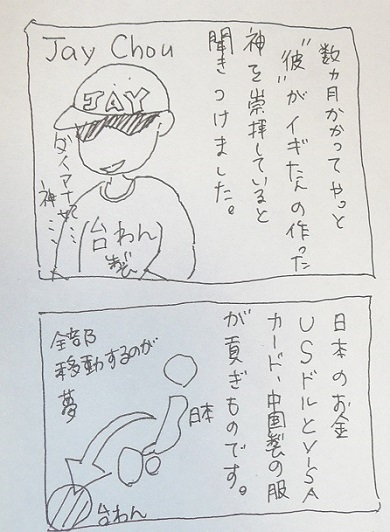 Jay Chou
数ヵ月かかってやっと
"彼"がイギたんの作った
神を崇拝していると
聞きつけました。
JAY
ダイアナせ
神……
台わん
日本のお金
USドルとVISA
カード、中国製の服
が貢ぎものです。
全部
移動するのが
夢
日本
台わん